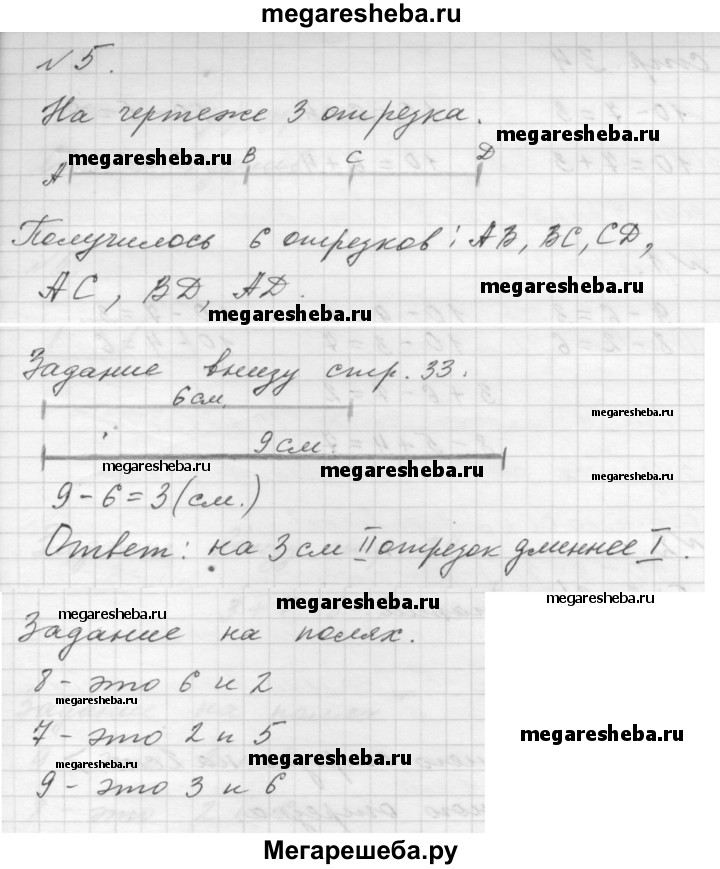 megaresheba.ru
№ 5.
На чертеже 3 отрезка.
megaresheba.ru
megaresheba.ru
A B C D
Получилось 6 отрезков: AB, BC, CD,
AC, BD, AD.
megaresheba.ru
megaresheba.ru
Задание внизу стр. 33.
6 см.
megaresheba.ru
9 см.
megaresheba.ru
megaresheba.ru
megaresheba.ru
9 - 6 = 3 (см.)
Ответ: на 3 см II отрезок длиннее I.
megaresheba.ru
megaresheba.ru
megaresheba.ru
Задание на полях.
8 - это 6 и 2
megaresheba.ru
7 - это 2 и 5
megaresheba.ru
megaresheba.ru
9 - это 3 и 6
Мегарешеба.ру